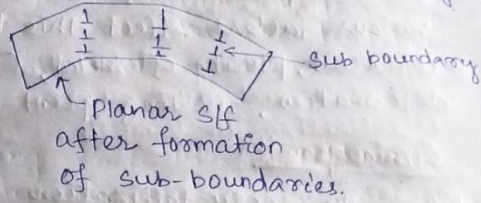 Sub boundary
Planar S/f
after formation
of sub-boundaries.